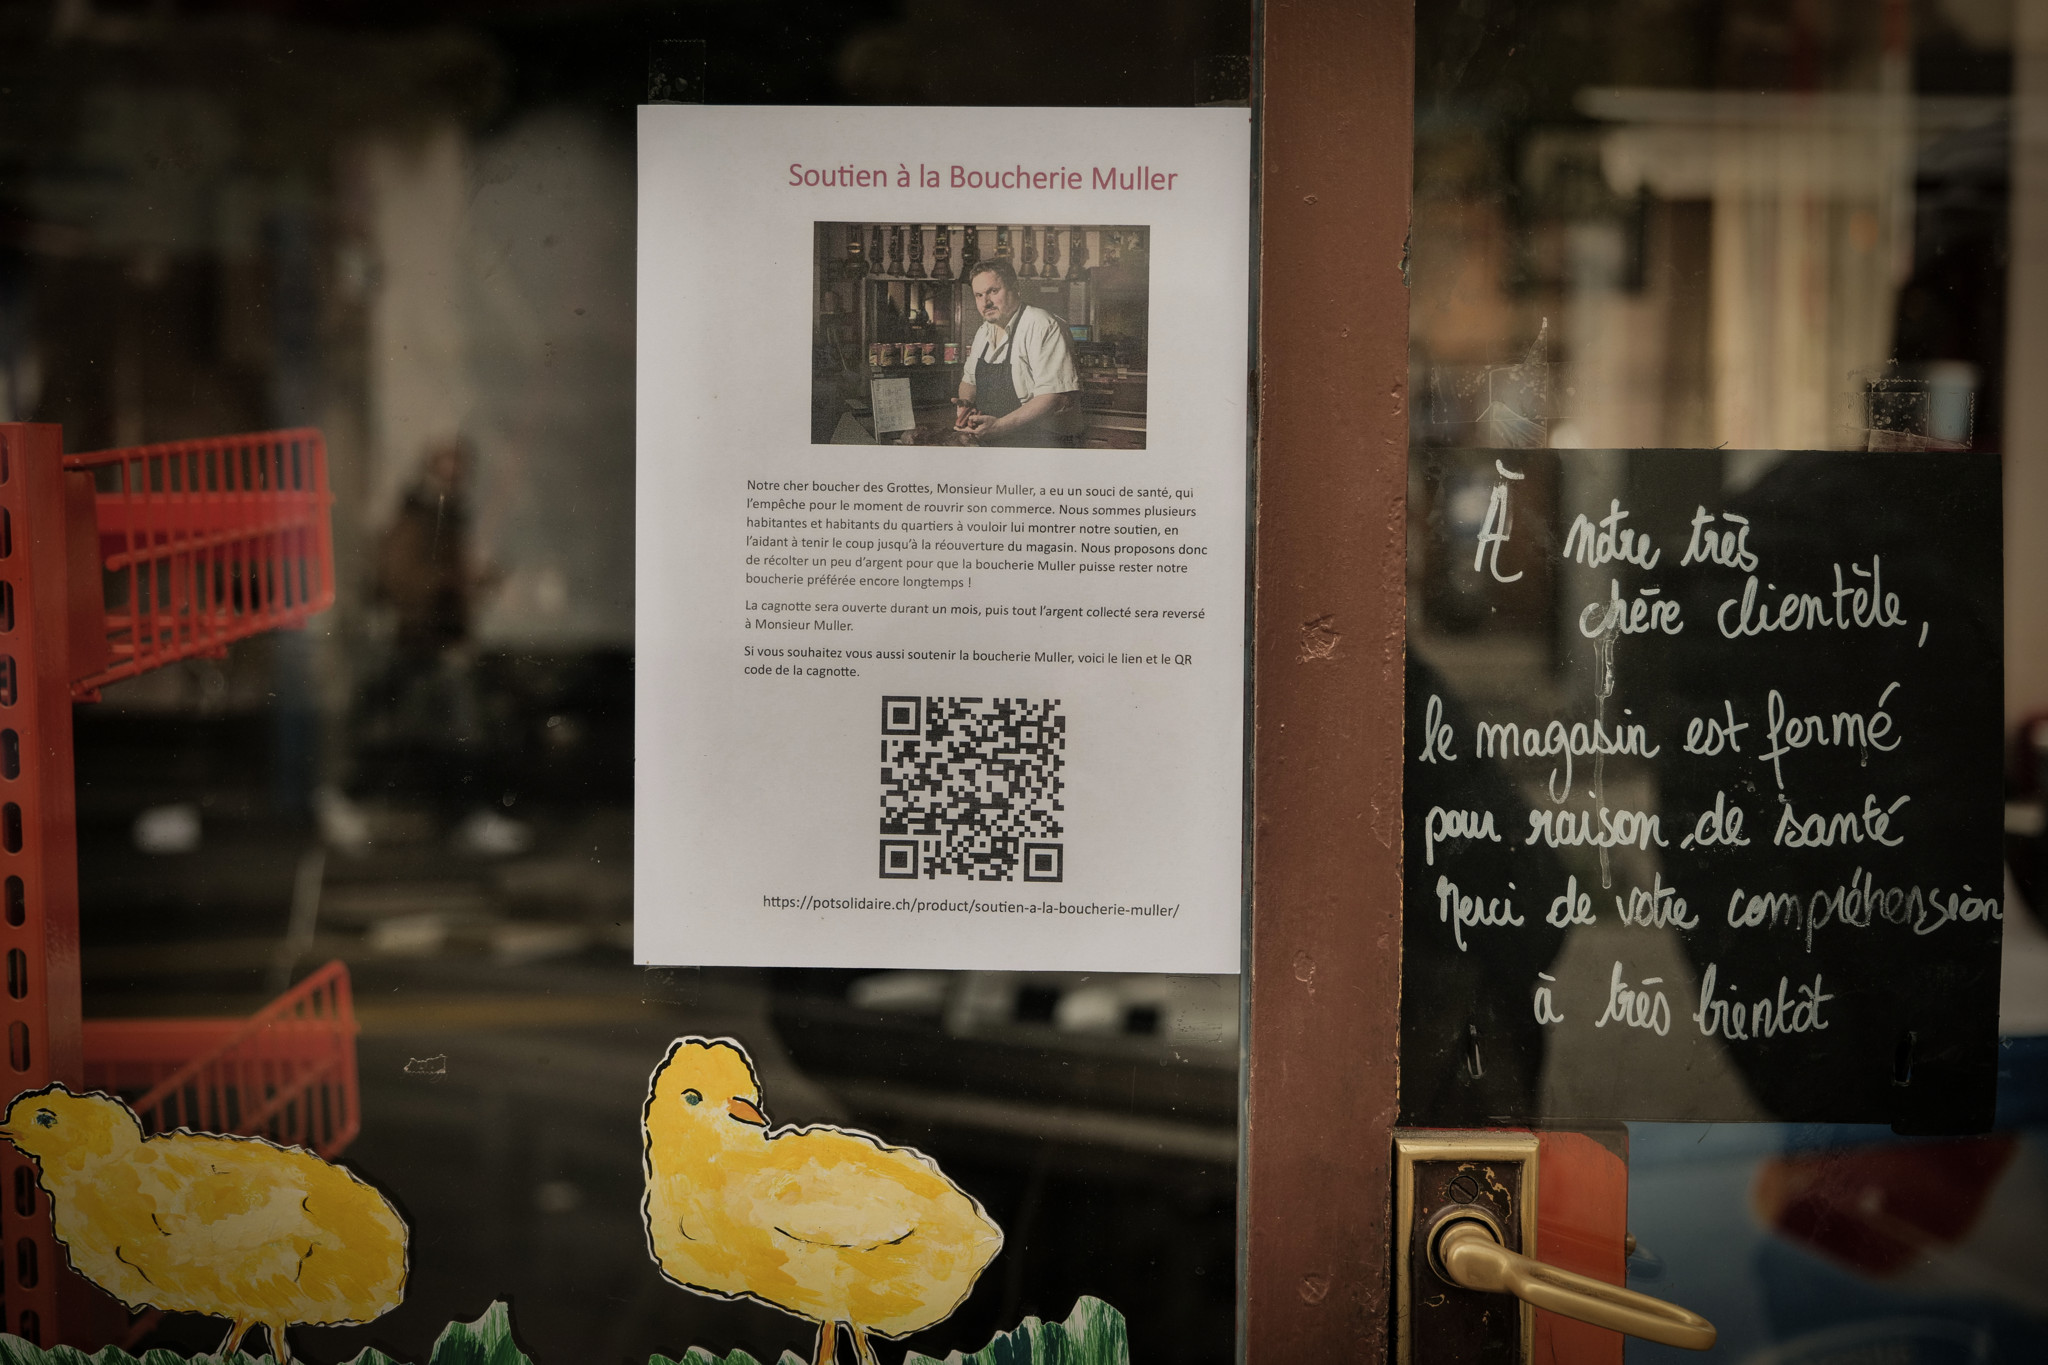 Soutien à la Boucherie Muller
Notre cher boucher des Grottes, Monsieur Muller, a eu un souci de santé, qui
l'empêche pour le moment de rouvrir son commerce. Nous sommes plusieurs
habitantes et habitants du quartiers à vouloir lui montrer notre soutien, en
l'aidant à tenir le coup jusqu'à la réouverture du magasin. Nous proposons donc
de récolter un peu d'argent pour que la boucherie Muller puisse rester notre
boucherie préférée encore longtemps !
La cagnotte sera ouverte durant un mois, puis tout l'argent collecté sera reversé
à Monsieur Muller.
Si vous souhaitez vous aussi soutenir la boucherie Muller, voici le lien et le QR
code de la cagnotte.
https://potsolidaire.ch/product/soutien-a-la-boucherie-muller/
À notre très
chère clientèle,
le magasin est fermé
pour raison de santé
Merci de votre compréhension
à très bientôt